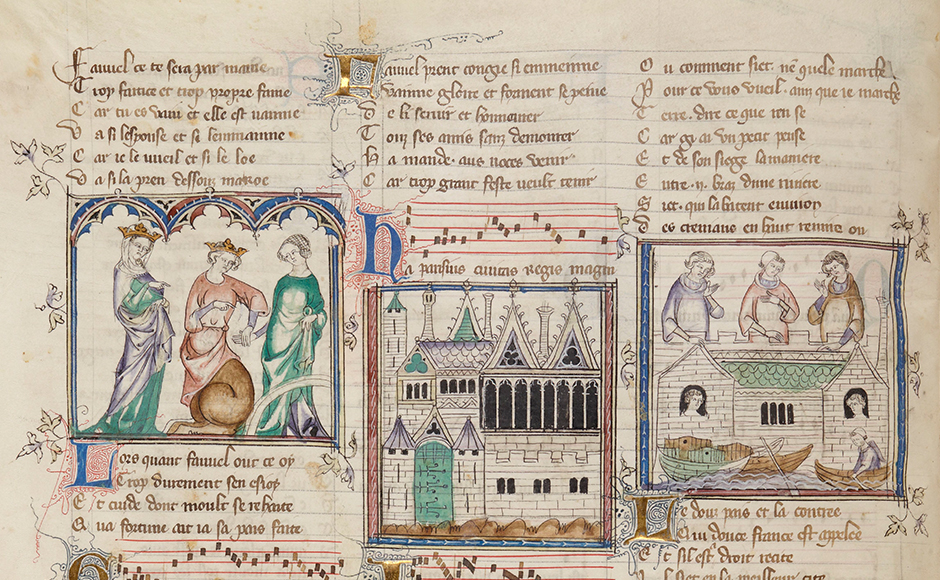 Fauuel ce te sera par marie
Trop france et trop propre
Car tu es vain et elle est vainne
Va si lespouse et si
Car ie le vueil et si le loe
Va si la pren dessouz
Lors quant fauuel out ce oy
trop durement sen
Et cuide dont moult se rehaite
Qua fortune ait ia sa pais faite
Fauuel prent congie si enmeinne
Vainne gloire et forment se peine
De li seruir et honnourer
Touz ses amis sanz demourer
Ha mande aus noces venir
Car trop grant feste veult tenir
Ha parisius ciuitas regis magni
Ou comment siet ne quele marche
Pour ce vous vueil ainz que ie marche
Terre dire ce que ien se
Car gy ai vn petit pense
Et de son siege la maniere
Entre ij braz dune riuiere
Siet qui la batent enuiron
Des creniaus en haut
Le douz pais et la contree
Qui douce france est appelee
Et sil est droit recite